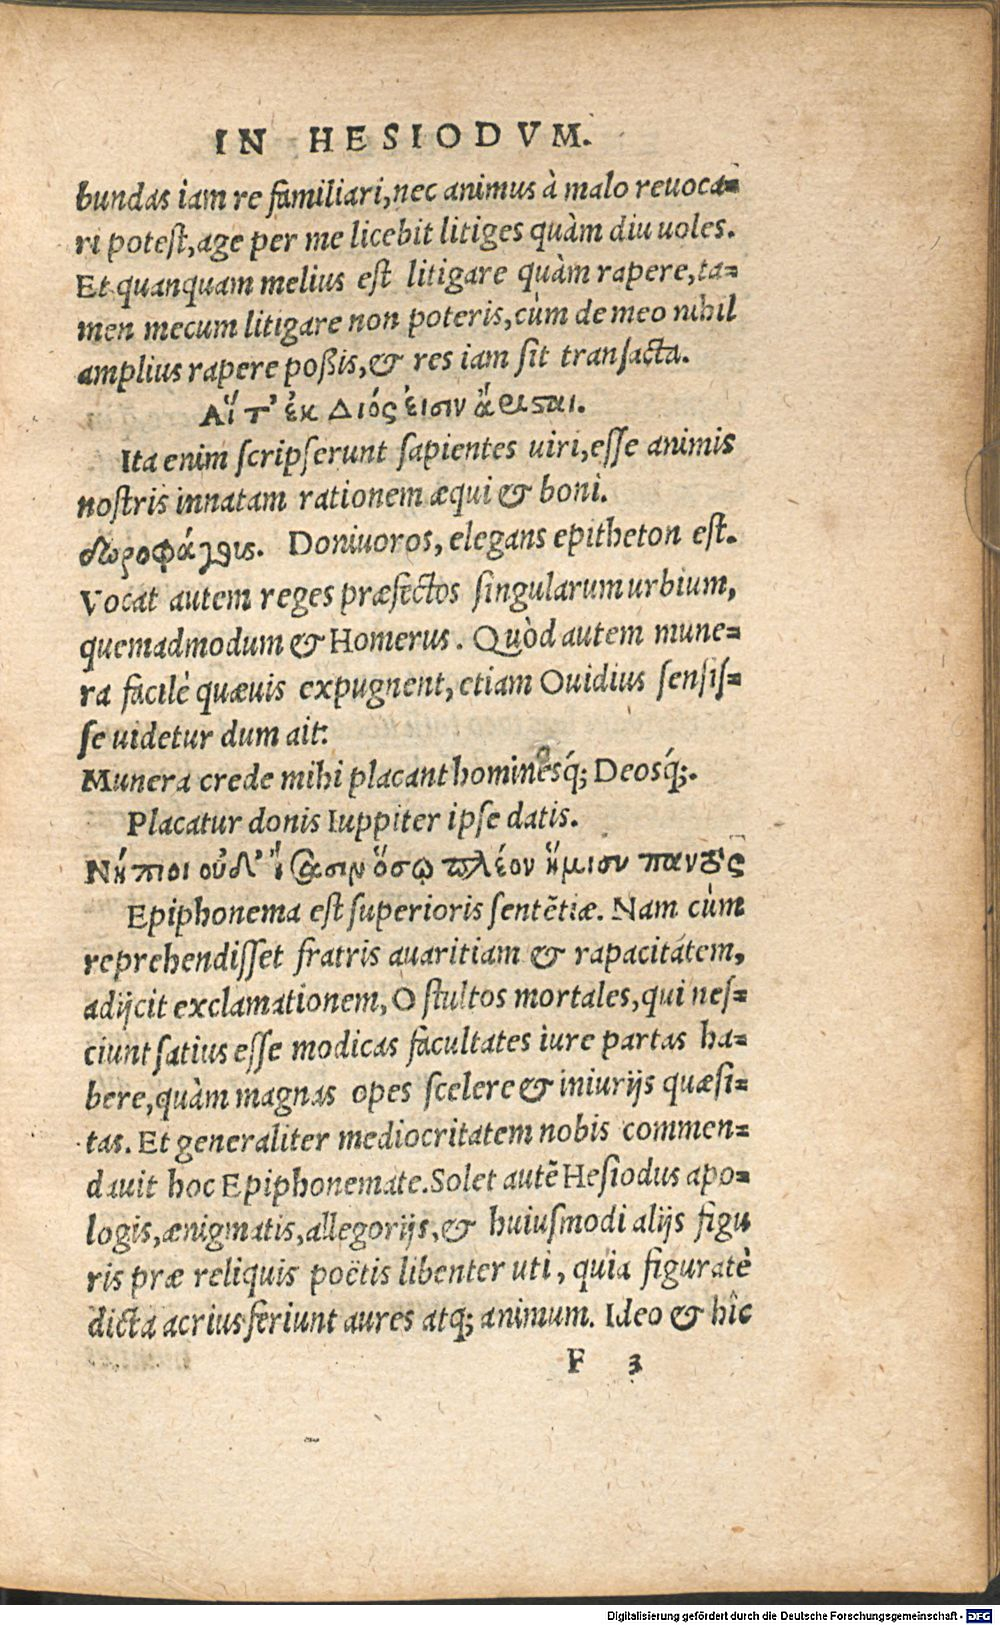 IN HESIODVM.
bundas iam re familiari, nec animus à malo reuoca=
ri potest, age per me licebit litiges quàm diu uoles.
Et quanquam melius est litigare quàm rapere, ta=
men mecum litigare non poteris, cùm de meo nihil
amplius rapere poßis, & res iam sit transacta.
Αἵ τ' ἐκ Διός ἐισιν ἄρισται.
Ita enim scripserunt sapientes uiri, esse animis
nostris innatam rationem æqui & boni.
δωροφάγοις. Doniuoros, elegans epitheton est.
Vocat autem reges præfectos singularum urbium,
quemadmodum & Homerus. Quòd autem mune=
ra facilè quæuis expugnent, etiam Ouidius sensis=
se uidetur dum ait:
Munera crede mihi placant hominesq́; Deosq́;.
Placatur donis Iuppiter ipse datis.
Νήπιοι οὐδ' ἴσασιν ὅσῳ πλέον ἥμισυ παντὸς
Epiphonema est superioris sentẽtiæ. Nam cùm
reprehendisset fratris auaritiam & rapacitatem,
adijcit exclamationem, O stultos mortales, qui nes=
ciunt satius esse modicas facultates iure partas ha=
bere, quàm magnas opes scelere & iniurijs quæsi=
tas. Et generaliter mediocritatem nobis commen=
dauit hoc Epiphonemate. Solet autẽ Hesiodus apo=
logis, ænigmatis, allegorijs, & huiusmodi alijs figu
ris præ reliquis poëtis libenter uti, quia figuratè
dicta acrius feriunt aures atq; animum. Ideo & hîc
F 3
Digitalisierung gefördert durch die Deutsche Forschungsgemeinschaft - DFG